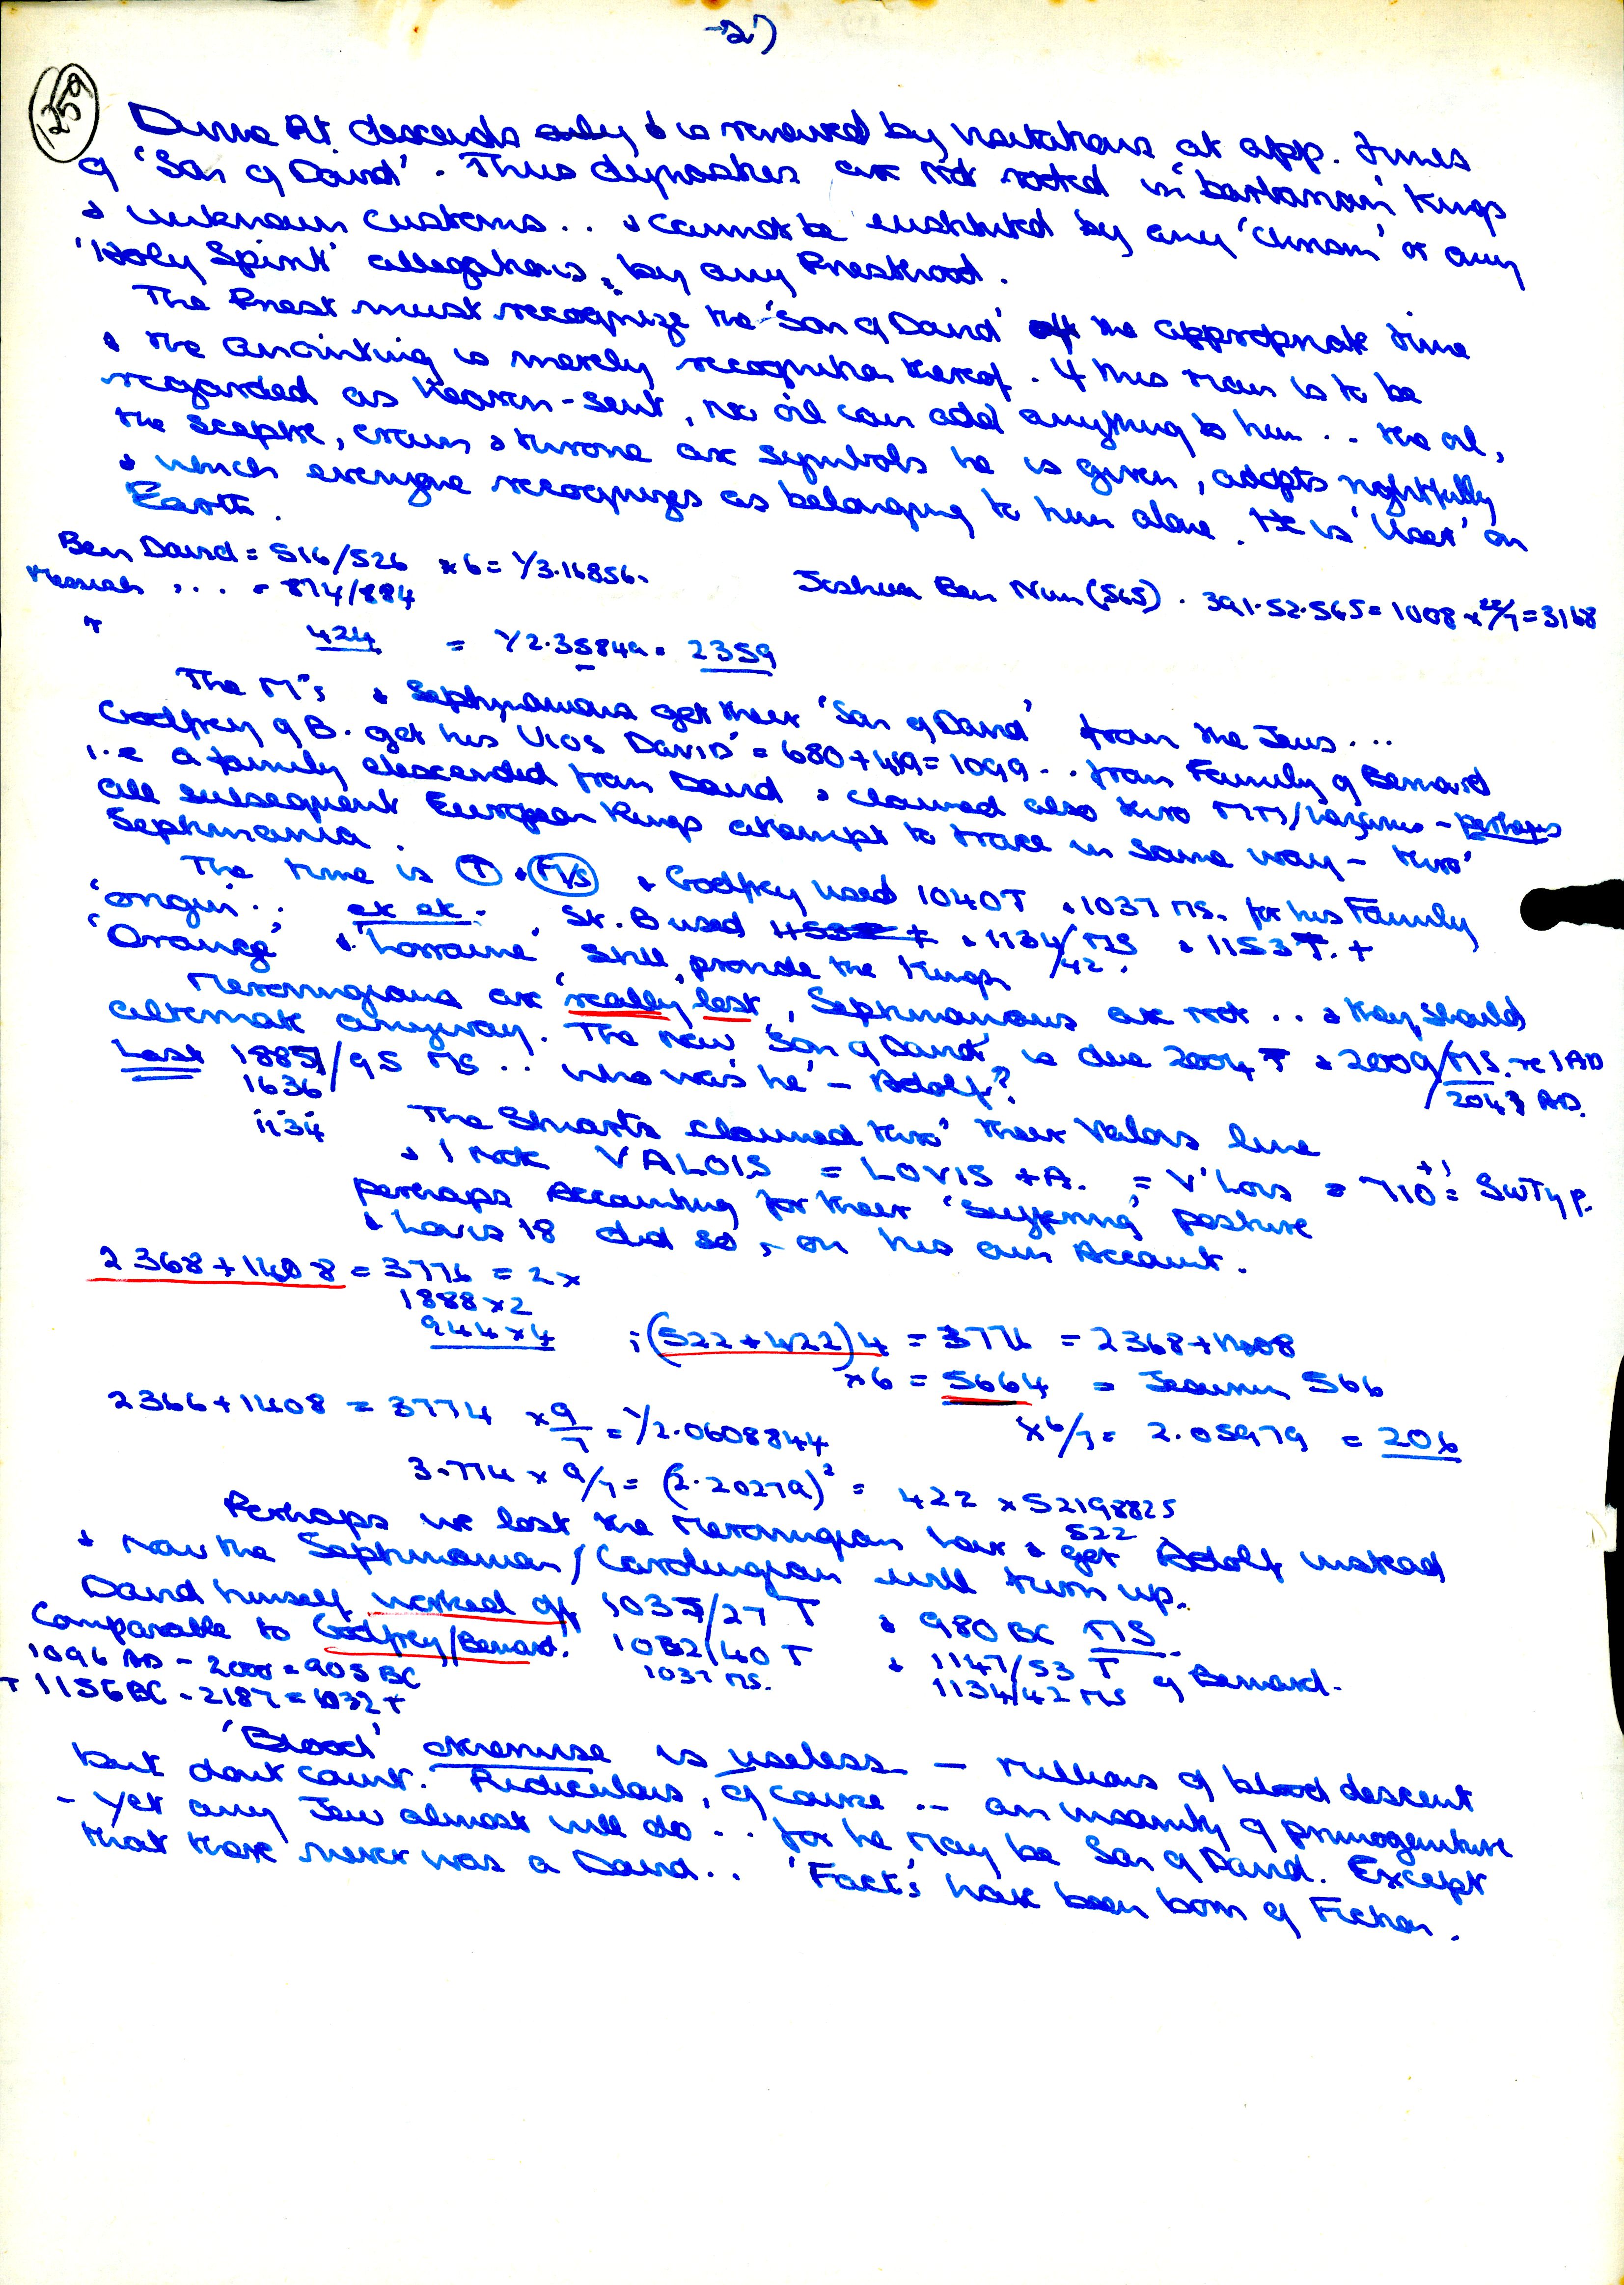 -2)
1259
Divine Rt. descends only & is renewed by visitations at app. times
of 'Son of David'. Thus dynasties are not rooted in 'barbarian' Kings
& unknown customs.. & cannot be instituted by any 'chrism' or any
'Holy Spirit' allegations, by any Priesthood.
The Priest must recognize the 'Son of David' at the appropriate time
& the anointing is merely recognition thereof. If this man is to be
regarded as Heaven-sent, no oil can add anything to him.. the oil,
the sceptre, crown & throne are symbols he is given, adopts rightfully
& which everyone recognizes as belonging to him alone. He is 'User' on
Earth.
Ben David = 516/526 x 6 = 1/3.16856.
Joshua Ben Nun (565). 391.52.565 = 1008 x 22/7 = 3168
Messiah ,.. = 874/884
424 = 1/2.35849 = 2359
The M's & Septimanians get their 'Son of David' from the Jews...
Godfrey of B. get his 'UIOS DAVID' = 680+419=1099.. from Family of Bernard
i.e a family descended from David & claimed also thro MM/ - perhaps
all subsequent European Kings attempt to trace in same way - thro'
Septimania.
The time is T & MS & Godfrey used 1040T & 1037 MS. for his Family
'origin'.. St. B used & 1134/42 MS & 1153 T. +
'Orange' & 'Lorraine' still provide the Kings
Merovingians are 'really' lost, Septimanians are not.. & they should
alternate anyway. The new 'Son of David' is due 2004 T & 2009/MS. re 1AD
/2043 AD.
Last 1885/95 MS.. who was he - Adolf?
1636
1134
The Stuarts claimed thro' their Valois line
& I note VALOIS = LOVIS + A. = V'Lois = 710 +1 = SWTyp.
perhaps Accounting for their 'Suffering' posture
& Louis 18 did so, on his own Account.
2368+1408 = 3776 = 2x
1888x2
944x4
; (522+422)4 = 3776 = 2368+1408
x6 = 5664 = 566
2366+1408 = 3774 x 9/7 = 1/2.0608844
x6/7 = 2.05979 = 206
3.774 x 9/7 = (2.20279)² = 422 x 52198825
522
Perhaps we lost the Merovingian here & get Adolf instead
& now the Septimanian/Carolingian will turn up.
David himself worked off 1035/27 T & 980 BC MS.
Comparable to Godfrey/Bernard. 1032/40 T & 1147/53 T of Bernard.
1037 MS. 1134/42 MS
1096 AD - 2000 = 905 BC
+ 1156 BC - 2187 = 1032 +
'Blood' otherwise is useless - millions of blood descent
but dont count. Ridiculous, of course.. an insanity of primogeniture
- Yet any Jew almost will do.. for he may be Son of David. Except
that there never was a David.. 'Fact's have been born of Fiction.